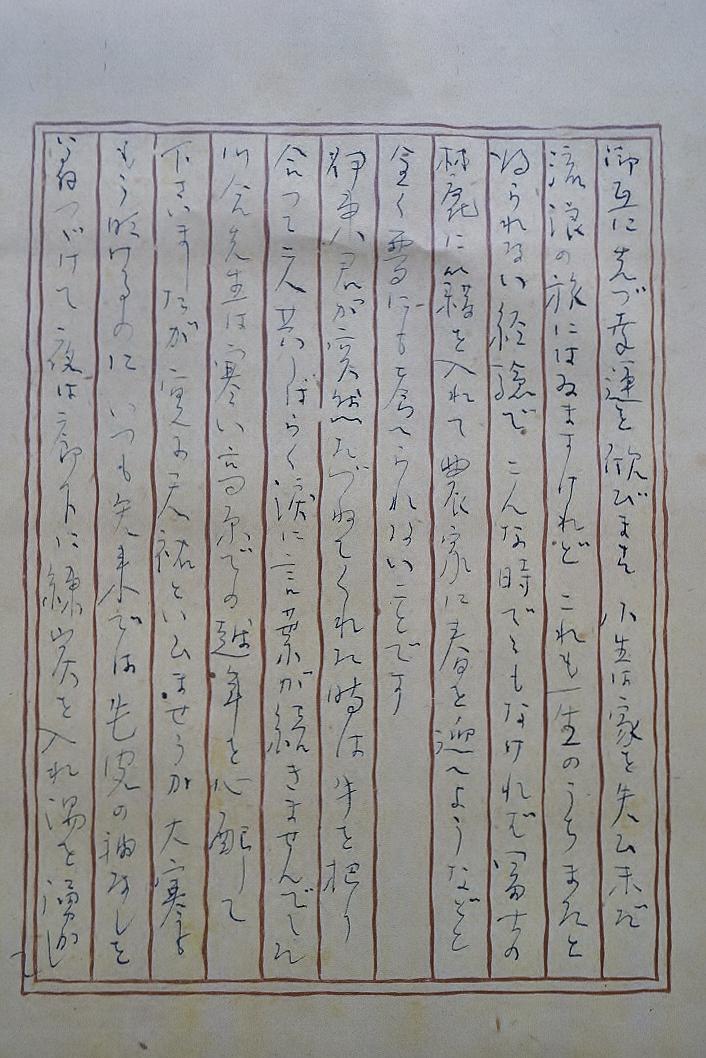 御互に先づ幸運を欣びます 小生は家を失ひ未だ
流浪の旅にはゐますけれど これも一生のうちまたと
得られない経験で こんな時でもなければ 富士の
林麓に籍を入れて農家に春を迎へようなどと
全く夢にも考へられないことです
伊東君が突然たづねてくれた時は 手を把り
合つて二人共しばらく涙に言葉が続きませんでした
川合先生は寒い高原での越年を心配して
下さいましたが 実に天祐といひませうか 大寒も
もう明けるのに いつも先来では毛皮の袖なしを
着つづけて 夜は廊下に練炭を入れ 湯を湧かし